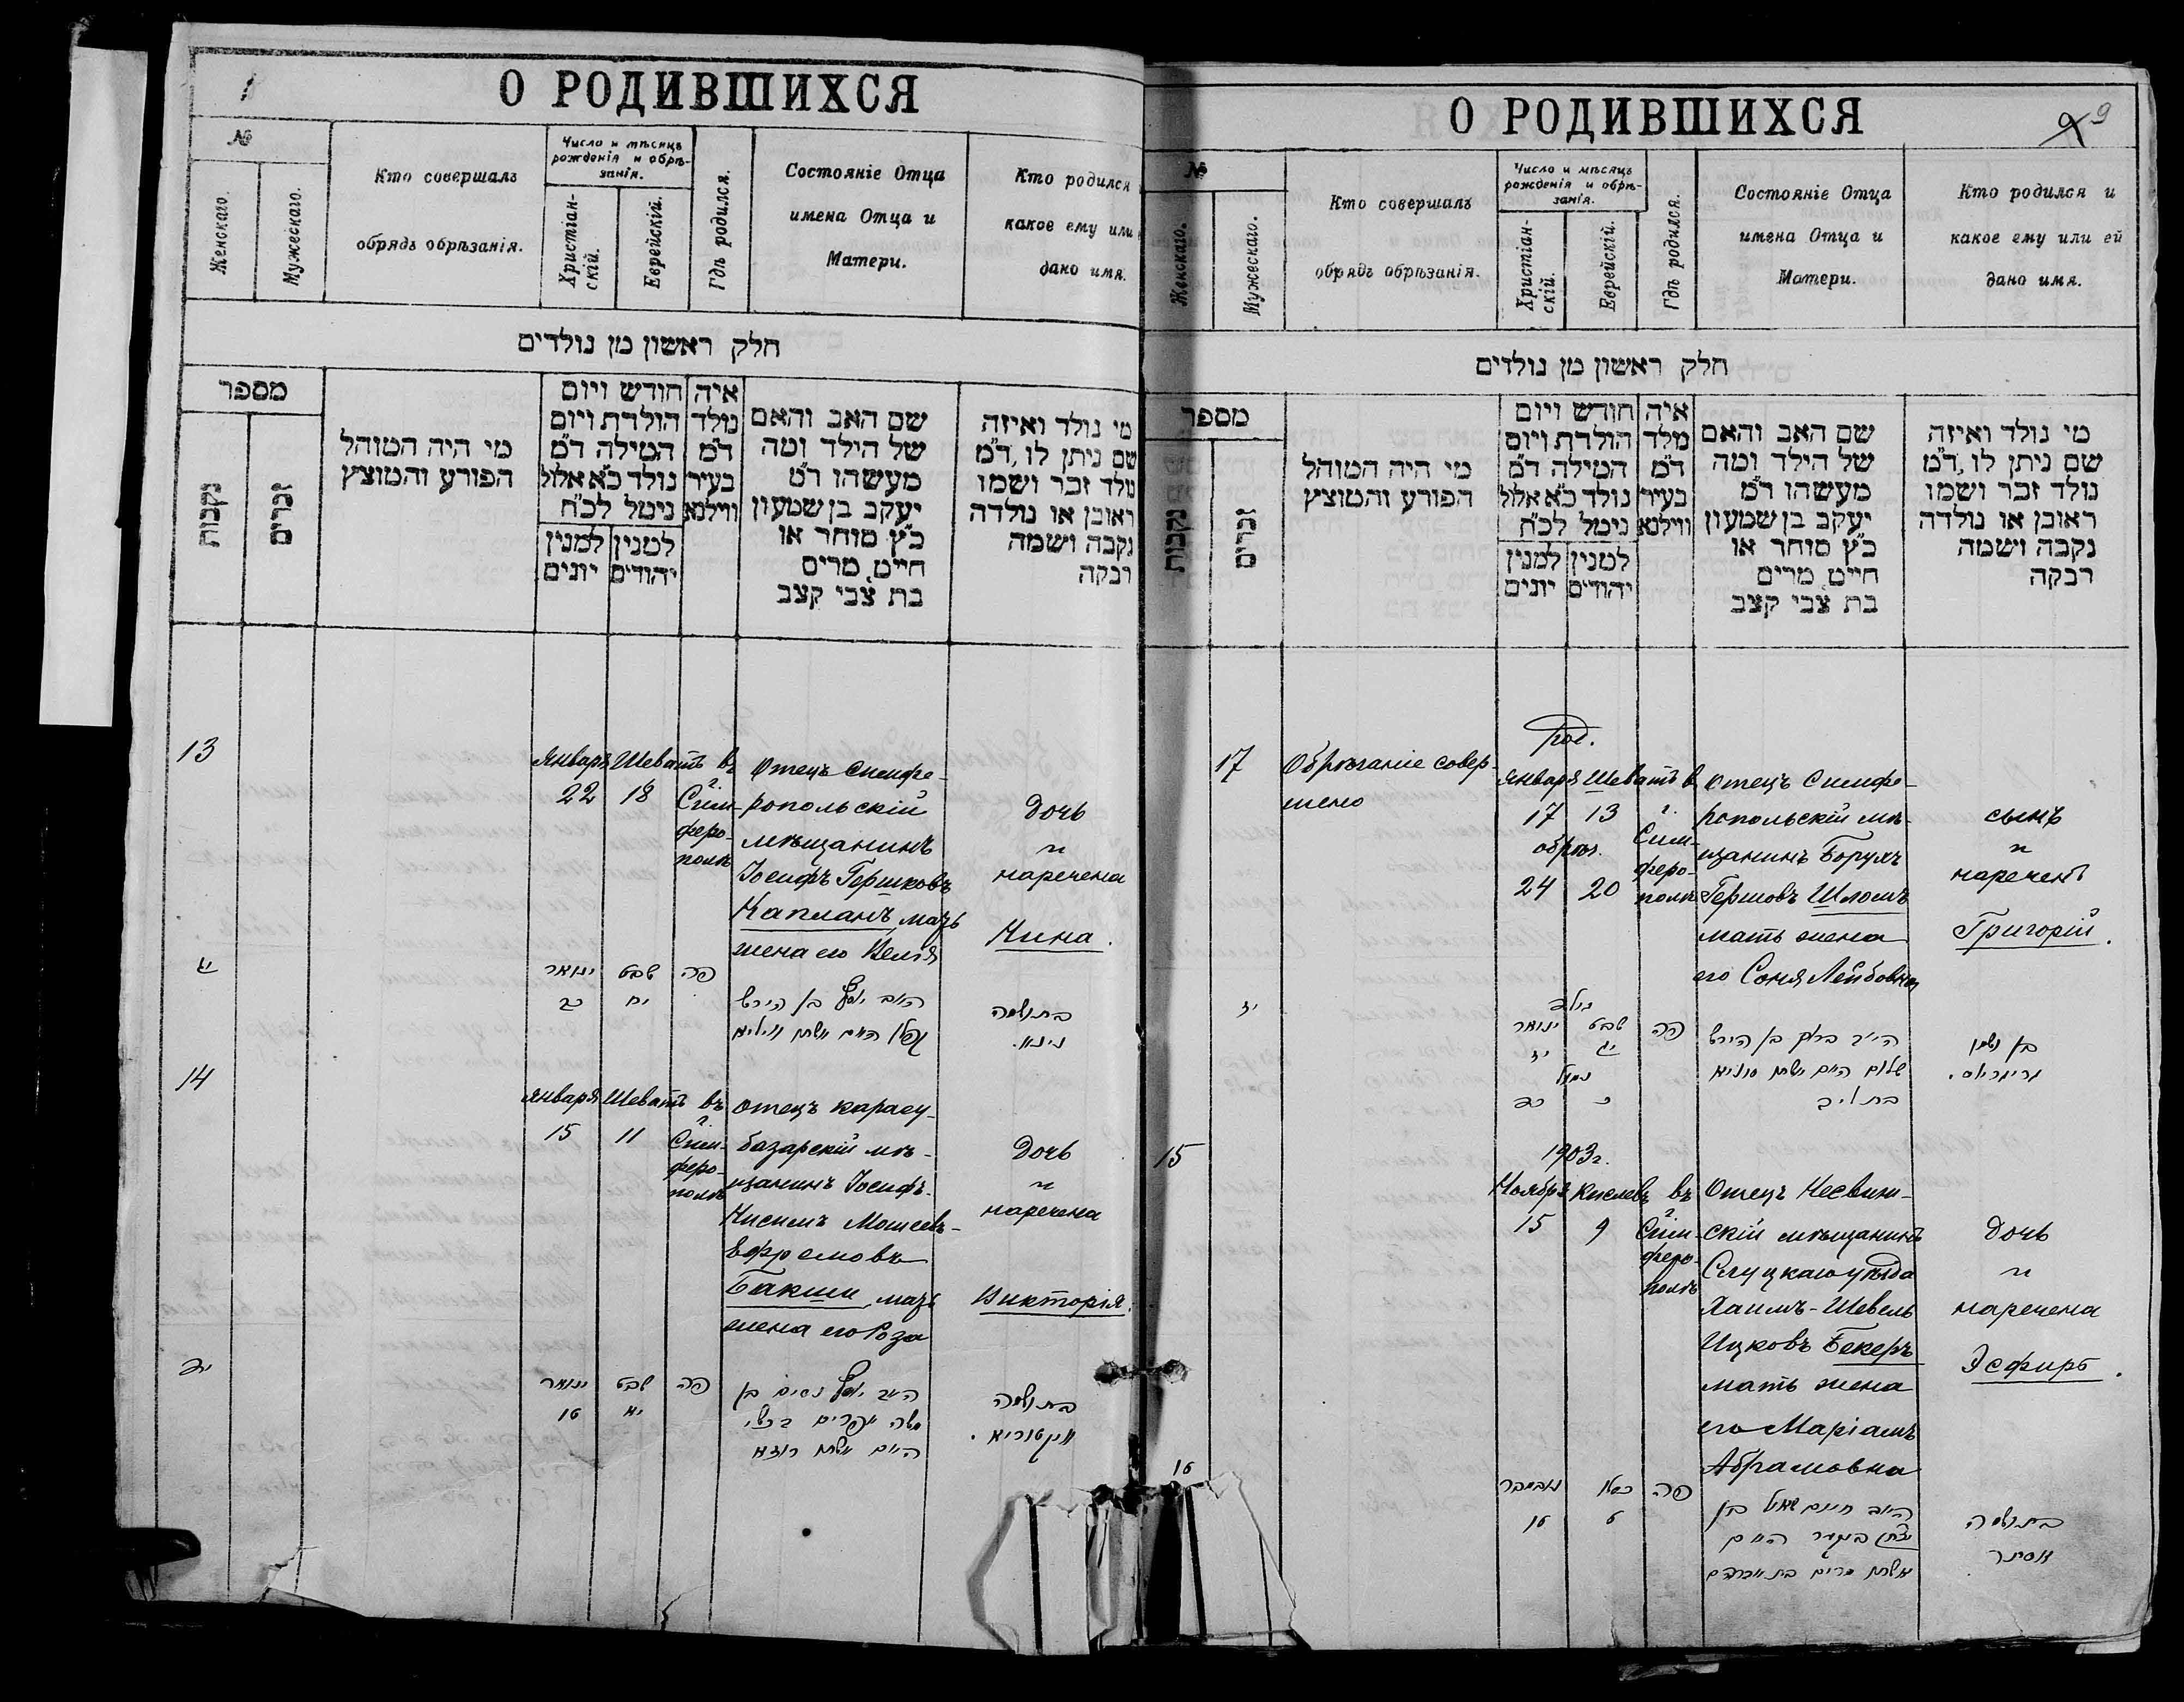 О РОДИВШИХСЯ
№
Женскаго.
Мужескаго.
Кто совершалъ
обрядъ обрѣзанія.
Число и мѣсяцъ
рожденія и обрѣ-
занія.
Христіан-
скій.
Еврейскій.
Гдѣ родился.
Состояніе Отца
имена Отца и
Матери.
Кто родился
какое ему или
дано имя.
חלק ראשון מן נולדים
מספר
נקבות
זכרים
מי היה המוהל
הפורע והמוצץ
חודש ויום
הולדת ויום
המילה ד"מ
נולד כ"א אלול
נימל לכ"ח
למנין יהודים
למנין יונים
איה
מלד
ד"מ
בעיר
ווילנא
שם האב והאם
של הילד ומה
מעשהו ד"מ
יעקב בן שמעון
כ"ץ סוחר או
חייט מרים
בת צבי קצב
מי נולד ואיזה
שם ניתן לו, ד"מ
נולד זכר ושמו
ראובן או נולדה
נקבה ושמה
רבקה
13
Январь Шеватъ въ
22 18
г. Сим-
феро-
полѣ
Отецъ симфе-
ропольскій
мѣщанинъ
Іосифъ Гершковъ
Капланъ, мать
жена его Велія
Дочь
и
наречена
Нина.
יג
ינואר שבט פה
כב יח
האב יוסף בן הירש
קפלן האם אשתו וויליא
בת ושמה
נינא.
14
Января Шеватъ въ
15 11
г. Сим-
феро-
полѣ
отецъ карасу-
базарскій мѣ-
щанинъ Іосифъ-
Нисимъ Мошеевъ-
Ефремовъ
Бакши, мать
жена его Роза
Дочь
и
наречена
Викторія.
יד
ינואר שבט פה
טו יא
האב יוסף נסים בן
משה אפרים בכשי
האם אשתו רוזא
בת ושמה
וויקטוריא.
О РОДИВШИХСЯ
9
№
Женскаго.
Мужескаго.
Кто совершалъ
обрядъ обрѣзанія.
Число и мѣсяцъ
рожденія и обрѣ-
занія.
Христіан-
скій.
Еврейскій.
Гдѣ родился.
Состояніе Отца
имена Отца и
Матери.
Кто родился и
какое ему или ей
дано имя.
חלק ראשון מן נולדים
מספר
נקבות
זכרים
מי היה המוהל
הפורע והמוצץ
חודש ויום
הולדת ויום
המילה ד"מ
נולד כ"א אלול
נימל לכ"ח
למנין יהודים
למנין יונים
איה
מלד
ד"מ
בעיר
ווילנא
שם האב והאם
של הילד ומה
מעשהו ד"מ
יעקב בן שמעון
כ"ץ סוחר או
חייט מרים
בת צבי קצב
מי נולד ואיזה
שם ניתן לו, ד"מ
נולד זכר ושמו
ראובן או נולדה
נקבה ושמה
רבקה
17
Обрѣзаніе совер-
шено
Род.
Января Шеватъ в
17 13
обрѣз.
24 20
г.
Сим-
феро-
полѣ
Отецъ Симфе-
ропольскій мѣ-
щанинъ Борухъ
Гершовъ Шломъ
мать жена
его Соня Лейбовна
сынъ
и
нареченъ
Григорій.
יז
נולד
ינואר שבט פה
יז יג
נמול
כד כ
האב ברוך בן הירש
שלום האם אשתו סוניא
בת ליב
בן ושמו
גריגוריוס.
15
1903 г.
Ноябрь Кислевъ въ
15 9
г.
Сим-
феро-
полѣ
Отецъ Несвиж-
скій мѣщанинъ
Слуцкаго уѣзда
Хаимъ-Шевель
Ицковъ Бекеръ
мать жена
его Маріамъ
Абрамовна
Дочь
и
наречена
Эсфирь.
16
נאוועמבר כסלו פה
טו ט
האב חיים שאול בן
יצחק בעקער האם
אשתו מרים בת אברהם
בת ושמה
אסתר